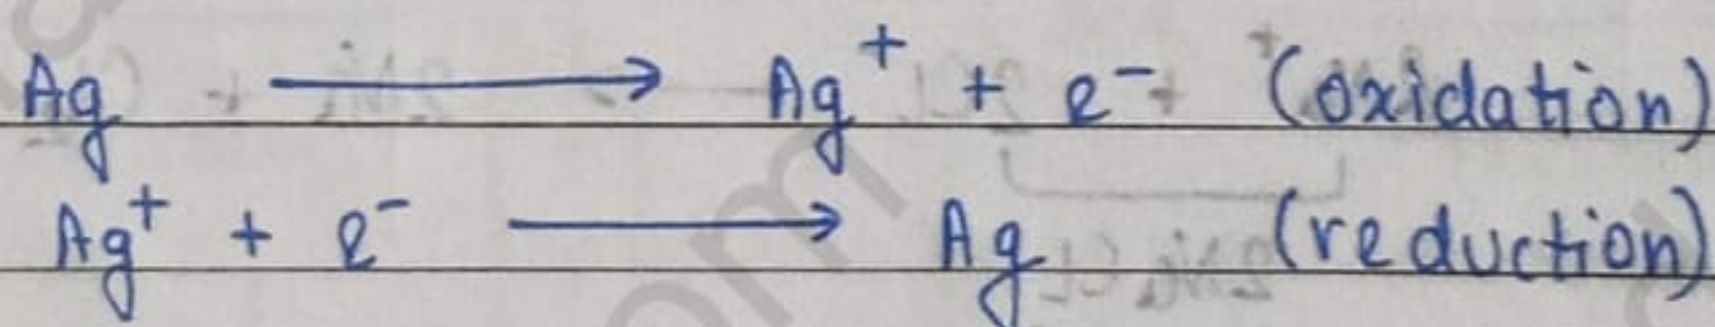 Ag ⟶ Ag⁺ + e⁻ (oxidation)
Ag⁺ + e⁻ ⟶ Ag (reduction)